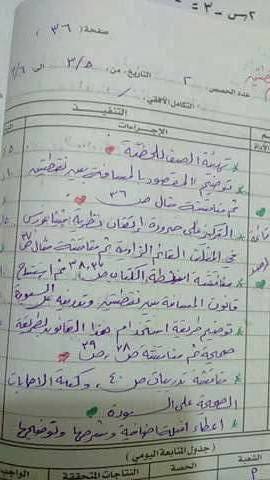 ٢س - ٣ =
صفحة ( ٣٦ )
عدد الحصص: ٢ التاريخ: من: ٣/٥ الى ٣/٦
التكامل الأفقي:
التنفيذ
الإجراءات
* تهيئة الصف للحصة
* توضيح المقصود بالمسافة بين نقطتين
ثم مناقشة مثال ص ٣٦
* التركيز على ضرورة إتقان نظرية فيثاغورس
في المثلث القائم الزاوية ثم مناقشة مثال ص ٣٧
* مناقشة انشطة الكتاب ص ٣٧، ٣٨ ثم استنتاج
قانون المسافة بين نقطتين وتدوينه على السبورة
* توضيح طريقة استخدام هذا القانون بطريقة
صحيحة ثم مناقشة ص ٣٨، ص ٣٩
* مناقشة تدريبات ص ٤٠، وكتابة الاجابات
الصحيحة على السبورة
* اعطاء امثلة اضافية وشرحها وتوضيحها
( جدول المتابعة اليومي )
الشعبة الحصة النتاجات المتحققة الواجب